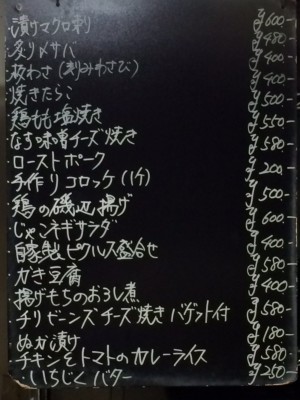 漬けマグロ刺 ¥600-
炙り〆サバ ¥480-
板わさ(刻みわさび) ¥400-
焼きたらこ ¥400-
鶏もも塩焼き ¥500-
なす味噌チーズ焼き ¥550-
ローストポーク ¥580-
手作りコロッケ(1ケ) ¥200-
鶏の磯辺揚げ ¥500-
じゃこネギサラダ ¥600-
自家製ピクルス盛合せ ¥400-
かき豆腐 ¥580-
揚げもちのおろし煮 ¥400-
チリビーンズチーズ焼き バゲット付 ¥580-
ぬか漬け ¥180-
チキンとトマトのカレーライス ¥580-
いちじくバター ¥250-